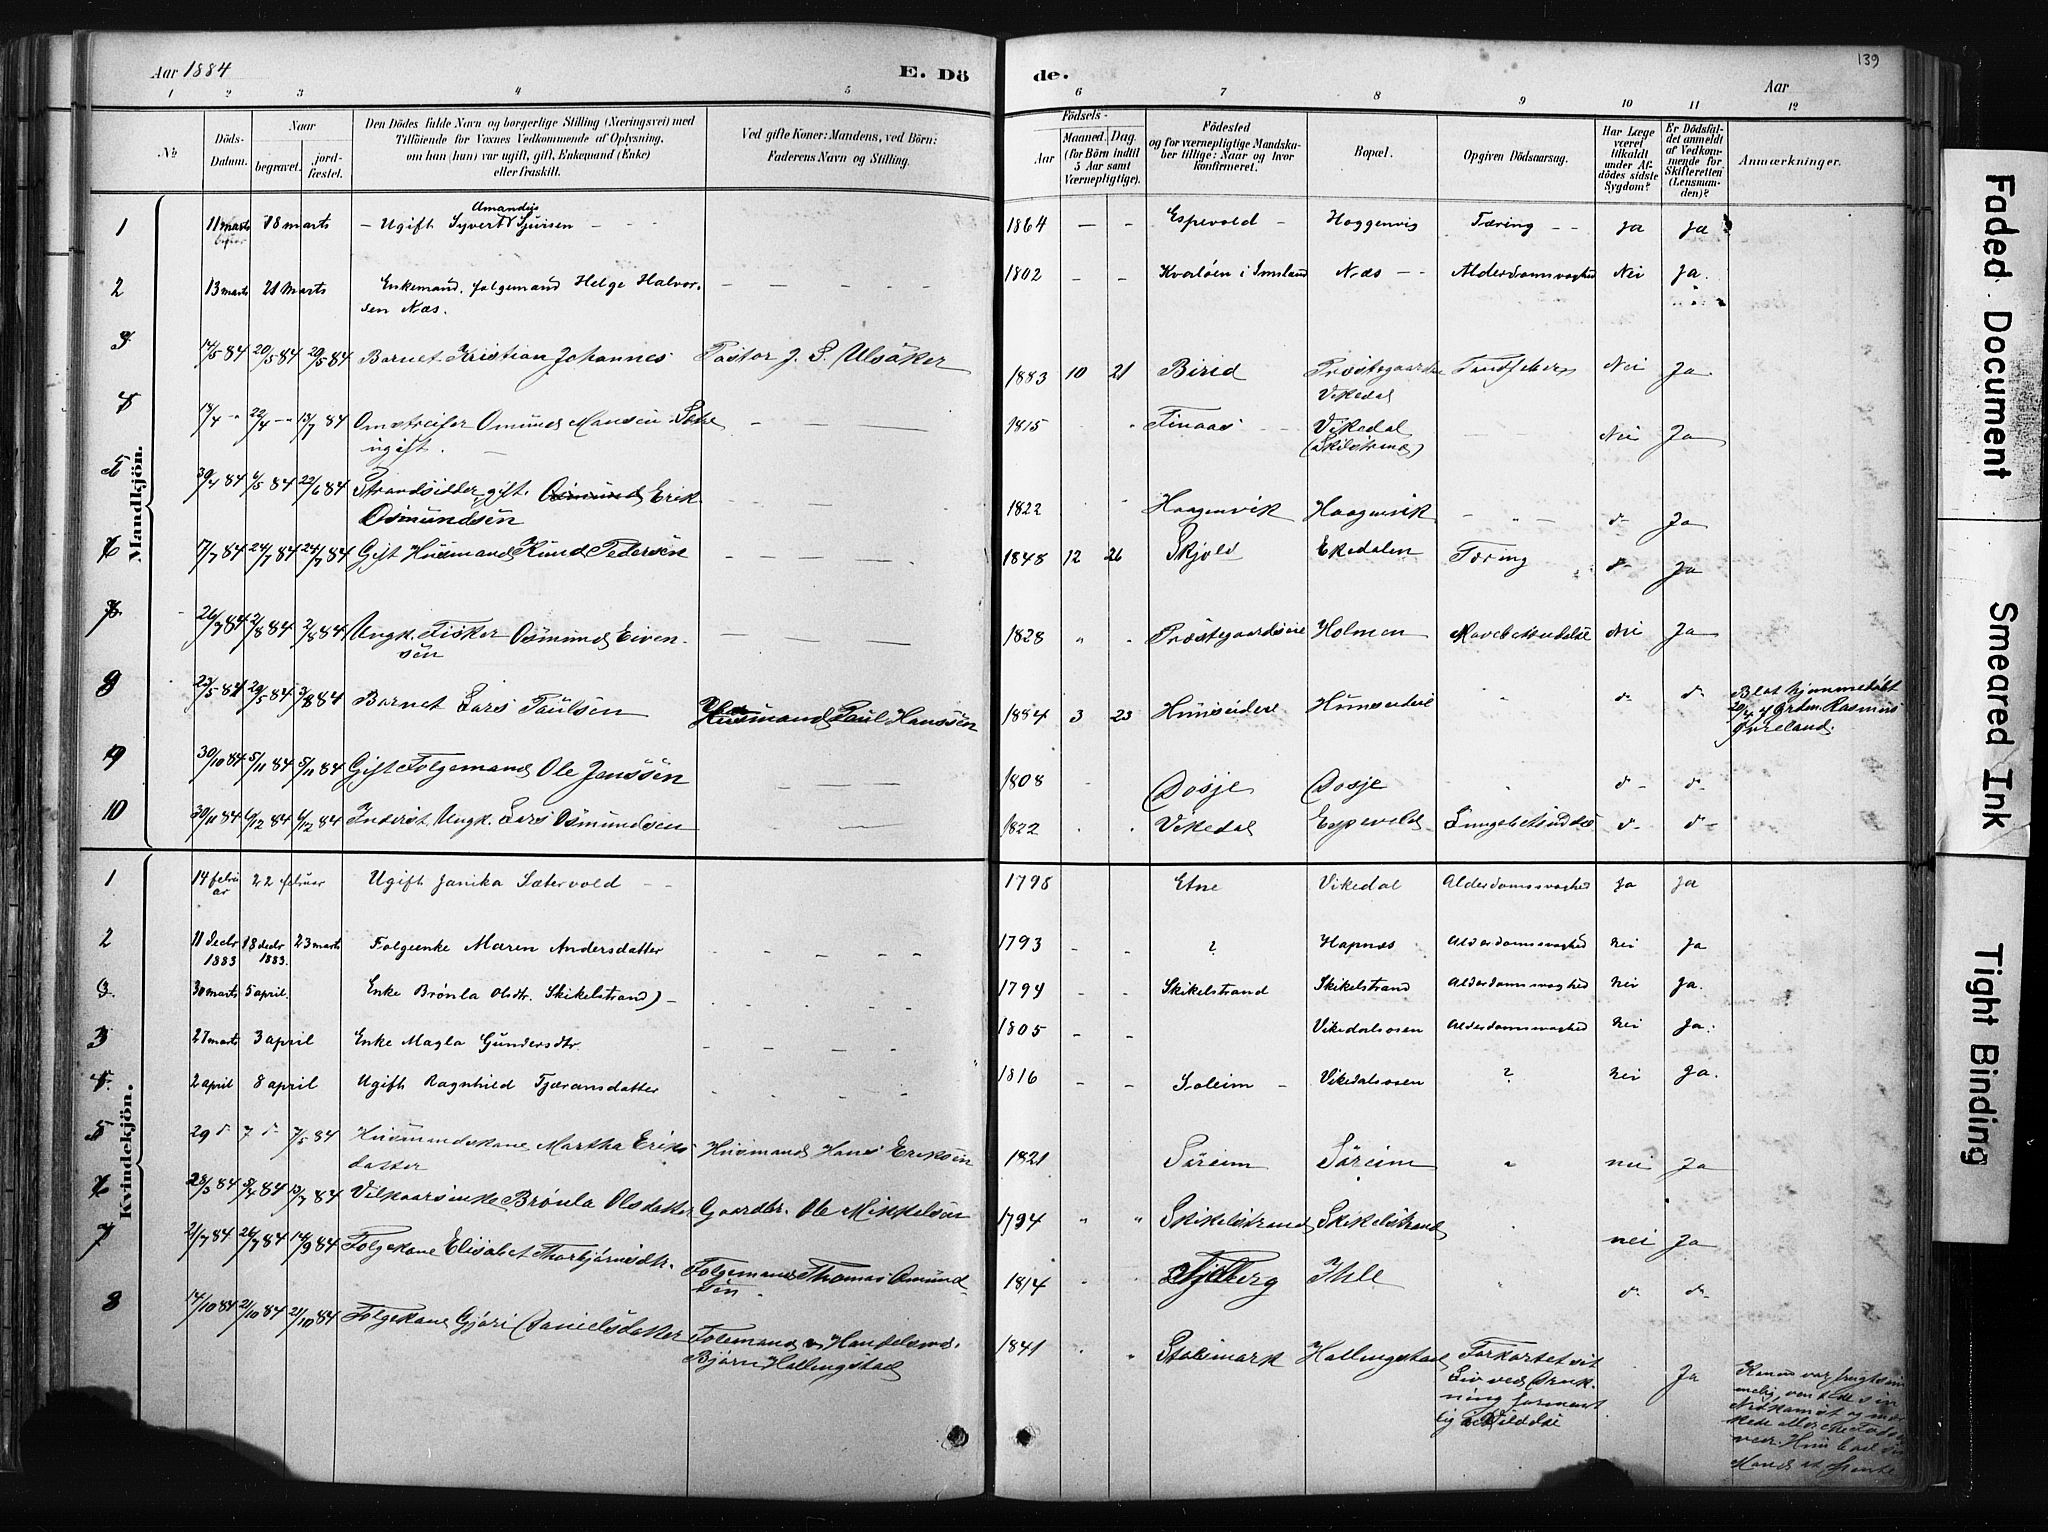 Aar 1884
E. Dö
de.
Aar
139
1 2 3 4 5 6 7 8 9 10 11 12
No
Döds-
Datum.
Naar
begravet.
jord-
fæstet.
Den Dödes fulde Navn og borgerlige Stilling (Næringsvei) med
Tilföiende for Voxnes Vedkommende af Oplysning,
om han (hun) var ugift, gift, Enkemand (Enke)
eller fraskilt.
Ved gifte Koner: Mandens, ved Börn:
Faderens Navn og Stilling.
Födsels-
Aar
Maaned. Dag.
(for Börn indtil
5 Aar samt
Værnepligtige).
Födested
og for værnepligtige Mandska-
ber tillige: Naar og hvor
konfirmeret.
Bopæl.
Opgiven Dödsaarsag.
Har Læge
været
tilkaldt
under Af-
dödes sidste
Sygdom?
Er Dödsfal-
det anmeldt
af Vedkom-
mende for
Skifteretten
(Lensman-
den)?
Anmærkninger.
Mandkjön.
1 11 marts 18 marts – Ugift Syvert Amandus Sjursen – 1864 – – Espevold – Haggenvig Tæring – – Ja Ja
2 13 marts 21 Marts Enkemand, folgemand Helge Halvor-
sen Næs. 1802 – – Kvaløen i Imsland Næs – – Alderdomsvaghed Nei Ja.
3 14/5 84 20/5 84 20/5 84 Barnet Kristian Johannes Pastor J. S. Ulsåker 1883 10 21 Birid Præstegaarden
Vikedal Nei Ja
4 18/4 – 22/4 – 13/7 84 Omstreifer Osmund Hansen
ugift. 1815 Finaas Vikedal
Nei Ja
5 30/4 84 6/5 84 22/6 84 Strandsidder, gift. Osmund Erik
Osmundsen 1822 Haagenvik Haagenvik d- Ja
6 17/7 84 24/7 84 24/7 84 Gift Husmand Knud Pedersen 1848 12 26 Skjold Ekedalen Tæring d- Ja
7 26/7 84 2/8 84 2/8 84 Ungk. Fisker Osmund Eiven-
sen 1828 Præstegaardseie Holmen Nei Ja
8 23/5 84 29/5 84 3/8 84 Barnet Lars Paulsen Husmand Paul Hanssen 1884 3 23 Hunseidere Hunseidere d- d- Blot hjemmedøbt
9 30/10 84 5/11 84 5/11 84 Gift Folgemand Ole Janssen 1808 Dosje Dosje d- d-
10 30/11 84 6/12 84 6/12 84 Inderst. Ungk. Lars Osmundsen 1822 Vikedal Espevold d- d-
Kvindekjön.
1 14 febru
ar 22 februar Ugift Janika Sætervold – – 1798 Etne Vikedal Alderdomsvaghed Ja Ja
2 11 decbr
1883 18 decbr
1883. 23 marts Folgeenke Maren Andersdatter 1793 – – ? Hapnæs Alderdomsvaghed Nei Ja
3. 30 marts 5 april. Enke Brønla Olsdtr. Skikelstrand) – 1794 – – Skikelstrand Skikelstrand Alderdomsvaghed Nei Ja.
3 27 marts 3 april Enke Magla Gundersdtr. 1805 – – Vikedalsosen Alderdomsvaghed Nei Ja.
4. 2 april 8 april Ugift Ragnhild Tjæransdatter 1816 – – Soleim – Vikedalsosen ? Nei Ja.
5 29 d- 7 d- 7/5 84 Husmandskone Martha Eriks
datter Husmand Hans Eriksen 1821 Søreim Søreim nei Ja
6 28/3 84 5/4 84 13/7 84 Vilkaarsenke Brønla Olsdatter Gaardbr. Ole Mikkelsen 1794 Skikelstrand Skikelstrand nei Ja
7 21/7 84 26/7 84 14/9 84 Folgekone Elisabet Thorbjørnsdtr. Folgemand Thomas Osmund-
sen 1814 Fjelberg Ihle d- d-
8 14/10 84 21/10 84 21/10 84 Folgekone Gjøri Danielsdatter Folgemand Handelsmd.
Bjørn Hallingstad 1841 Hallingstad Forkortet sit
Liv ved Druk-
ning
Ja
Faded Document
Smeared Ink
Tight Binding